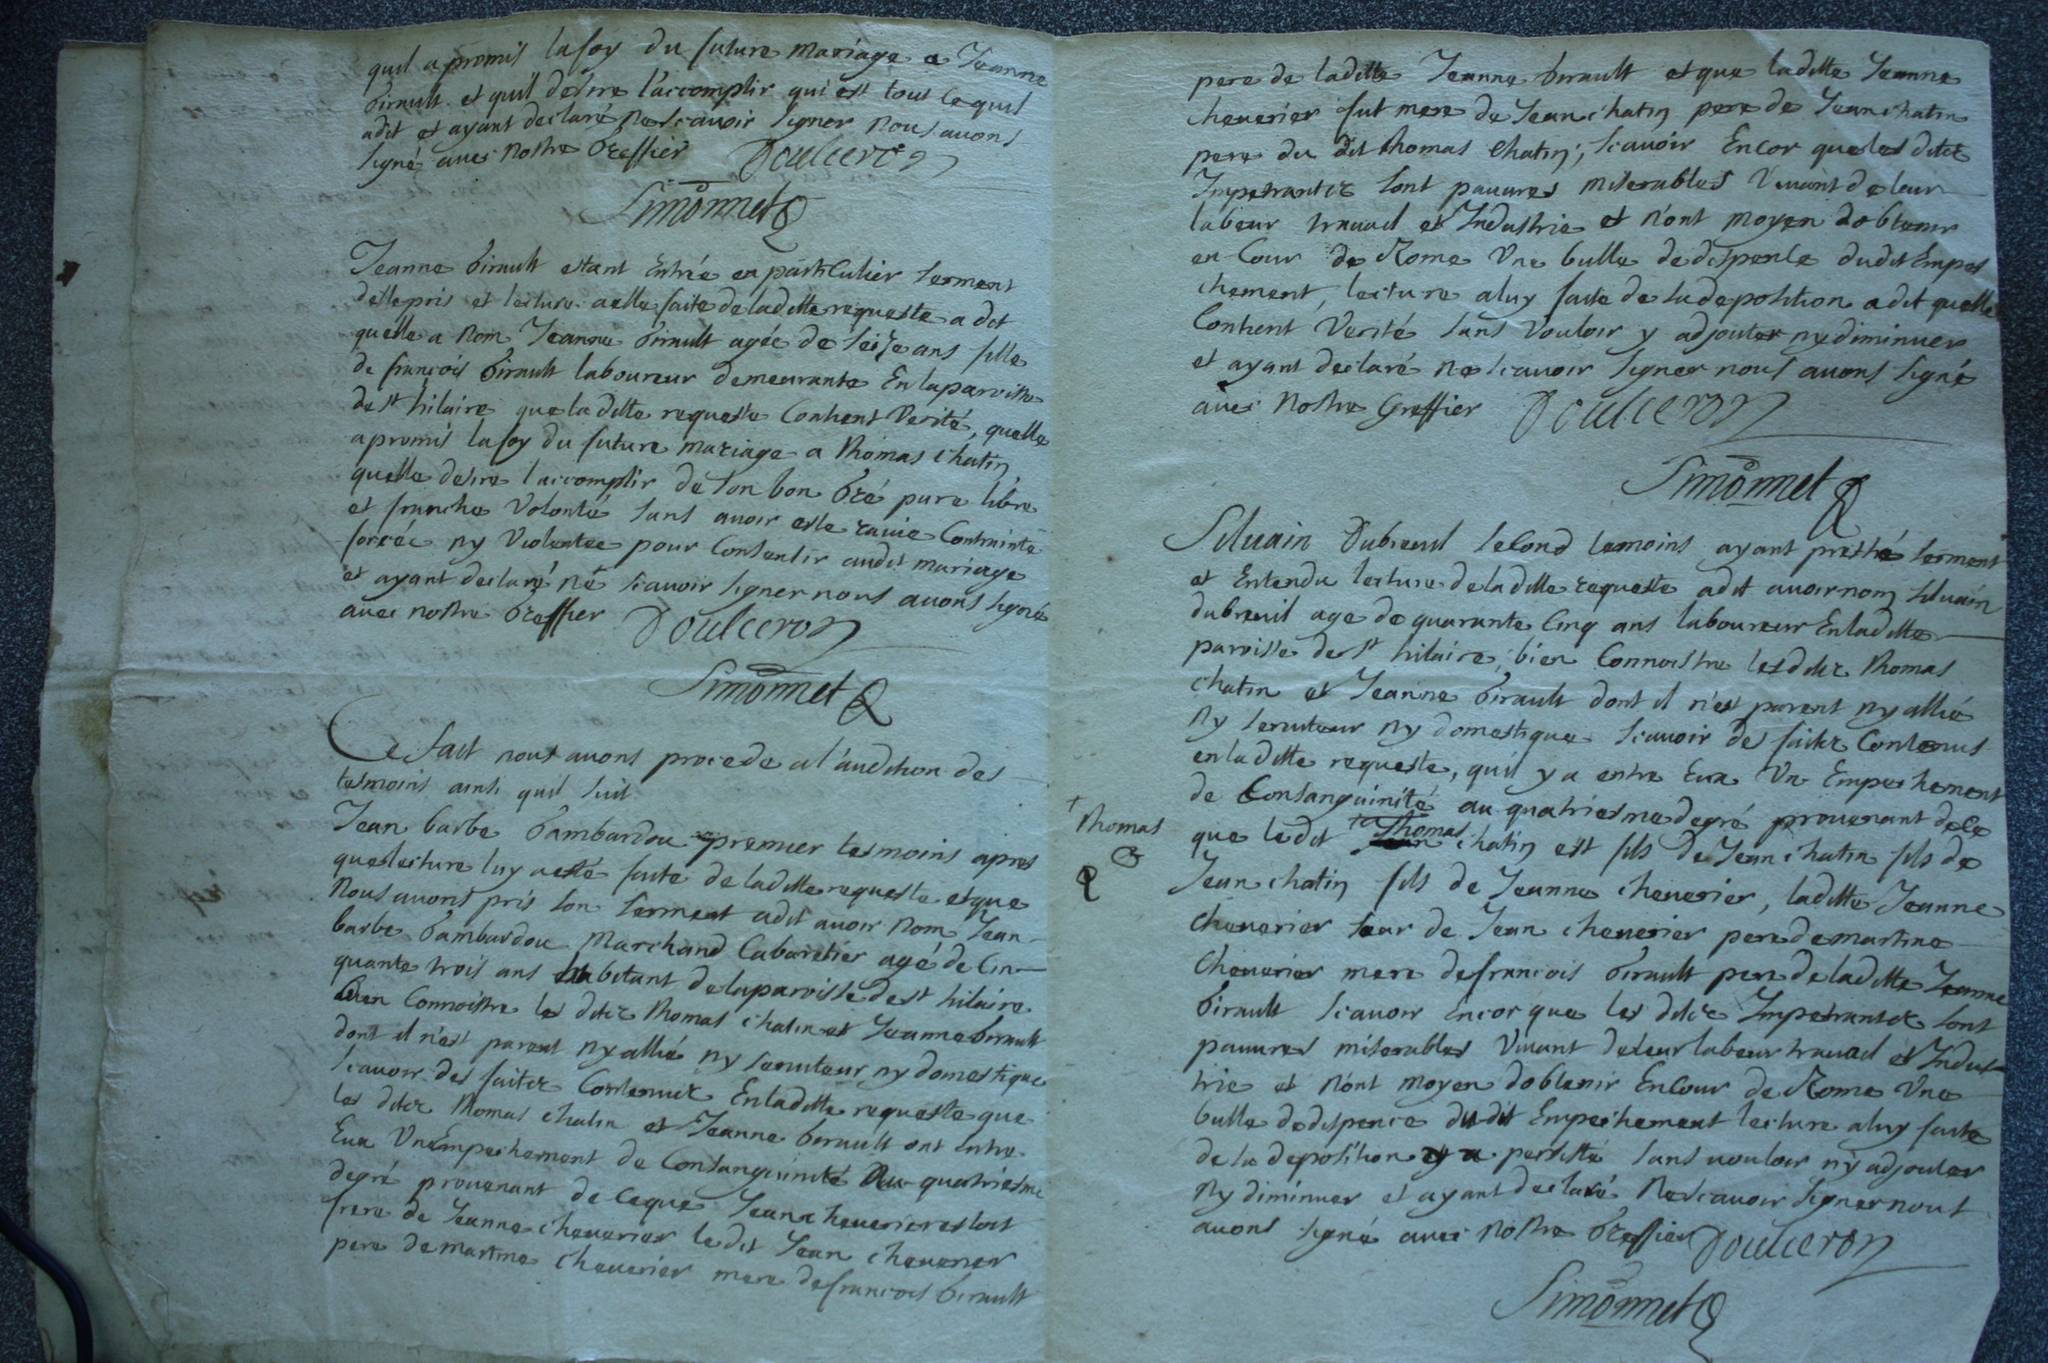 quil a promis la foy du future mariage a Jeanne
Girault et quil desire l'accomplir qui est tout ce quil
a dit et ayant declaré ne scavoir signer nous avons
signé avec nostre Greffier Doulceron
Simonnet
Jeanne Girault estant Entrée en particulier serment
delle pris et lecture a elle faite de la ditte requeste a dit
quelle a nom Jeanne Girault agée de seize ans fille
de françois Girault laboureur demeurante En la paroisse
de st hilaire que la ditte requeste Contient Verité, quelle
a promis la foy du future mariage a Thomas Chatin
quelle desire l'accomplir de son bon Gré pure libre
et franche Volonté sans avoir esté ravie Contrainte
forcée ny Violentée pour Consentir audit mariage
et ayant declaré ne scavoir signer nous avons signé
avec nostre Greffier Doulceron
Simonnet
Ce fait nous avons procede a l'audition des
tesmoins ainsi quil suit
Jean barbe Gambardou premier tesmoins apres
que lecture luy a esté faite de la ditte requeste et que
Nous avons pris son serment a dit avoir nom Jean
barbe Gambardou Marchand Cabaretier agé de Cin-
quante trois ans habitant de la paroisse de st hilaire
bien Connoistre les dits Thomas Chatin et Jeanne Girault
dont il n'est parent ny allié ny serviteur ny domestique
scavoir des faits Contenus En la ditte requeste que
les dits Thomas Chatin et Jeanne Girault ont entre
Eux Un Empechement de Consanguinité Au quatriesme
degré provenant de ce que Jean cheverier estoit
frere de Jeanne cheverier le dit Jean cheverier
pere de martine cheverier mere de françois Girault
pere de la ditte Jeanne Girault et que la ditte Jeanne
cheverier fut mere de Jean chatin pere de Jean chatin
pere du dit thomas Chatin, scavoir Encor que les dits
Impetrants sont pauvres miserables Vivant de leur
labeur travail et Industrie et n'ont moyen dobtenir
en Cour de Rome Une bulle de dispense dudit Empes
chement, lecture a luy faite de sa deposition a dit quelle
Contient Verité sans Vouloir y adjouter ny diminuer
et ayant declaré ne scavoir signer nous avons signé
avec Nostre Greffier Doulceron
Simonnet
Silvain Dubreuil second tesmoins ayant presté serment
et Entendu lecture de la ditte requeste a dit avoir nom Silvain
dubreuil age de quarante Cinq ans laboureur En la ditte
paroisse de st hilaire, bien Connoistre les dits Thomas
chatin et Jeanne Girault dont il n'est parent ny allié
ny serviteur ny domestique scavoir des faits Contenus
en la ditte requeste, quil y a entre Eux Un Empechement
de Consanguinité au quatriesme degré provenant de ce
† Thomas
que le dit † Thomas chatin est fils de Jean chatin fils de
Jean chatin fils de Jeanne cheverier, la ditte Jeanne
Cheverier sœur de Jean cheverier pere de martine
Cheverier mere de françois Girault pere de la ditte Jeanne
Girault scavoir encor que les dits Impetrants sont
pauvres miserables Vivant de leur labeur travail et Indus
trie et n'ont moyen dobtenir En Cour de Rome Une
bulle de dispence du dit Empechement lecture a luy faite
de sa deposition y a persisté sans vouloir n'y adjouter
ny diminuer et ayant declaré ne scavoir signer nous
avons signé avec nostre Greffier Doulceron
Simonnet